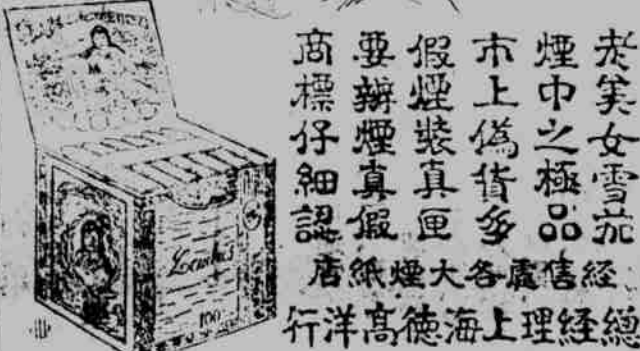 老美女雪茄
煙中之極品
市上偽貨多
假煙裝真匣
要辨煙真假
商標仔細認
經售處各大煙紙店
總經理上海德高洋行
100